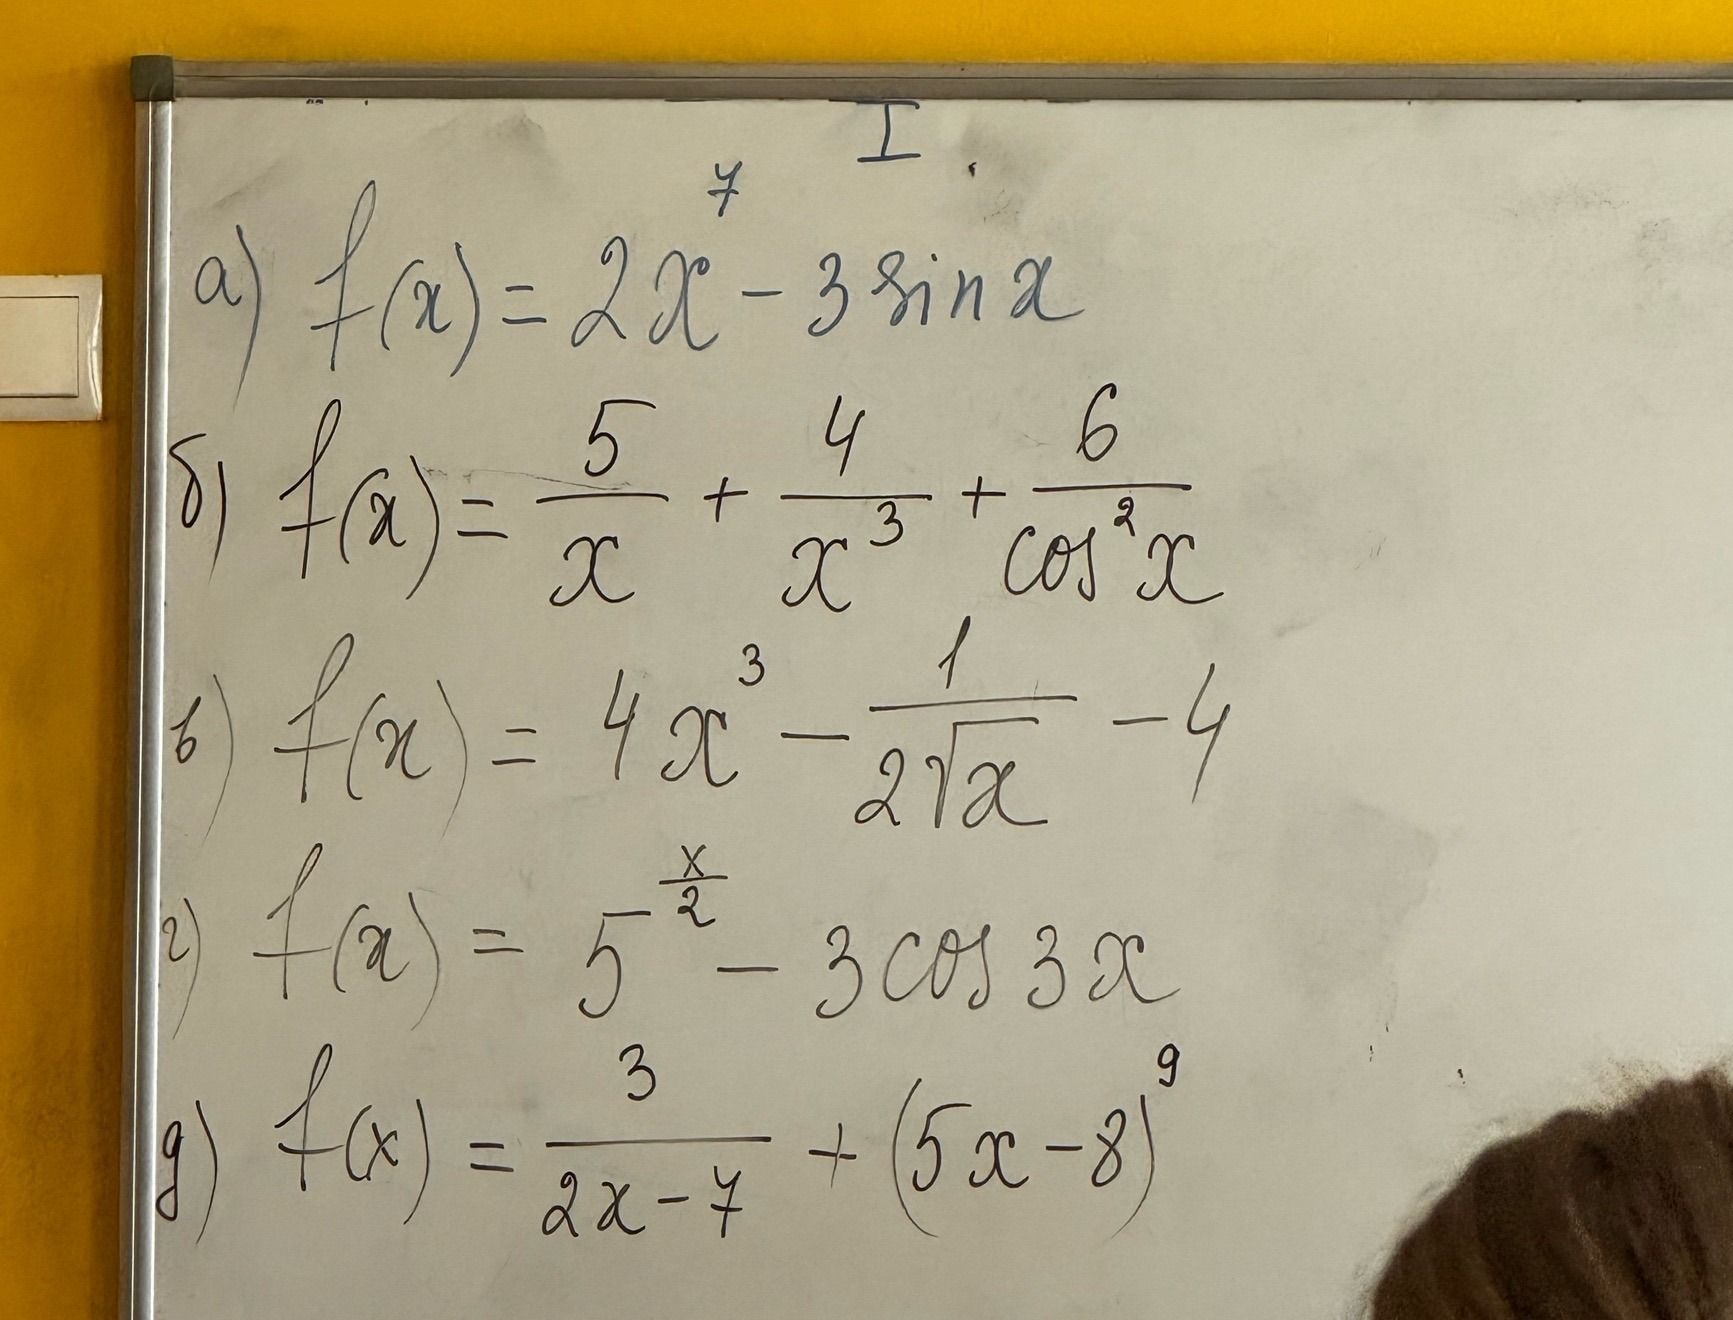 I
а) f(x) = 2x⁷ - 3 sin x
б) f(x) = 5/x + 4/x³ + 6/cos²x
в) f(x) = 4x³ - 1/(2√x) - 4
г) f(x) = 5^(x/2) - 3 cos 3x
д) f(x) = 3/(2x-7) + (5x-8)⁹